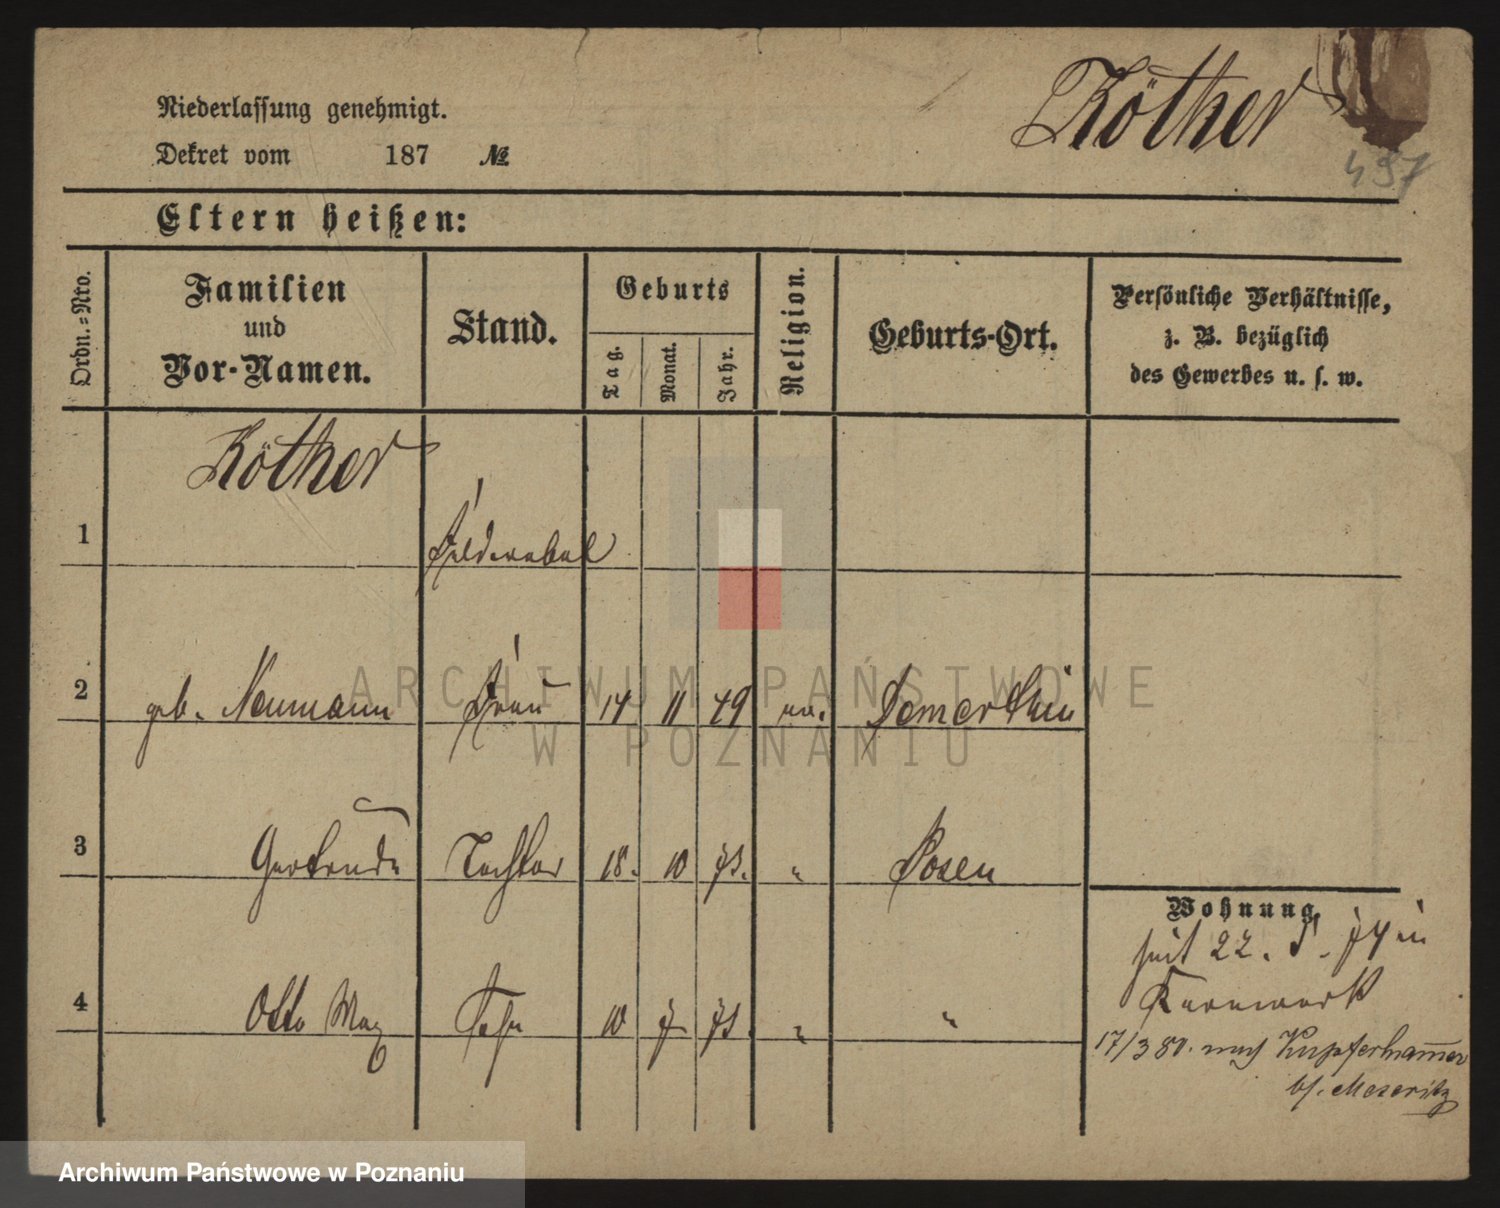 Köther
497
Niederlassung genehmigt.
Dekret vom 187 №
Eltern heißen:
Ordn.=Nro.
Familien und Vor-Namen.
Stand.
Geburts
Tag.
Monat.
Jahr.
Religion.
Geburts-Ort.
Persönliche Verhältnisse,
z. B. bezüglich
des Gewerbes u. s. w.
Köther
1 Feldwebel
2 geb. Neumann Frau 14 11 49 ev.
3 Gertrude Tochter 18. 10 73. " Posen
4 Otto Max Sohn 10 7 "  "
Wohnung.
seit 22. 5. 74 in
Kernwerk
17/3 80. nach Kupferhammer
b/. Meseritz
ARCHIWUM PAŃSTWOWE
W POZNANIU
Archiwum Państwowe w Poznaniu